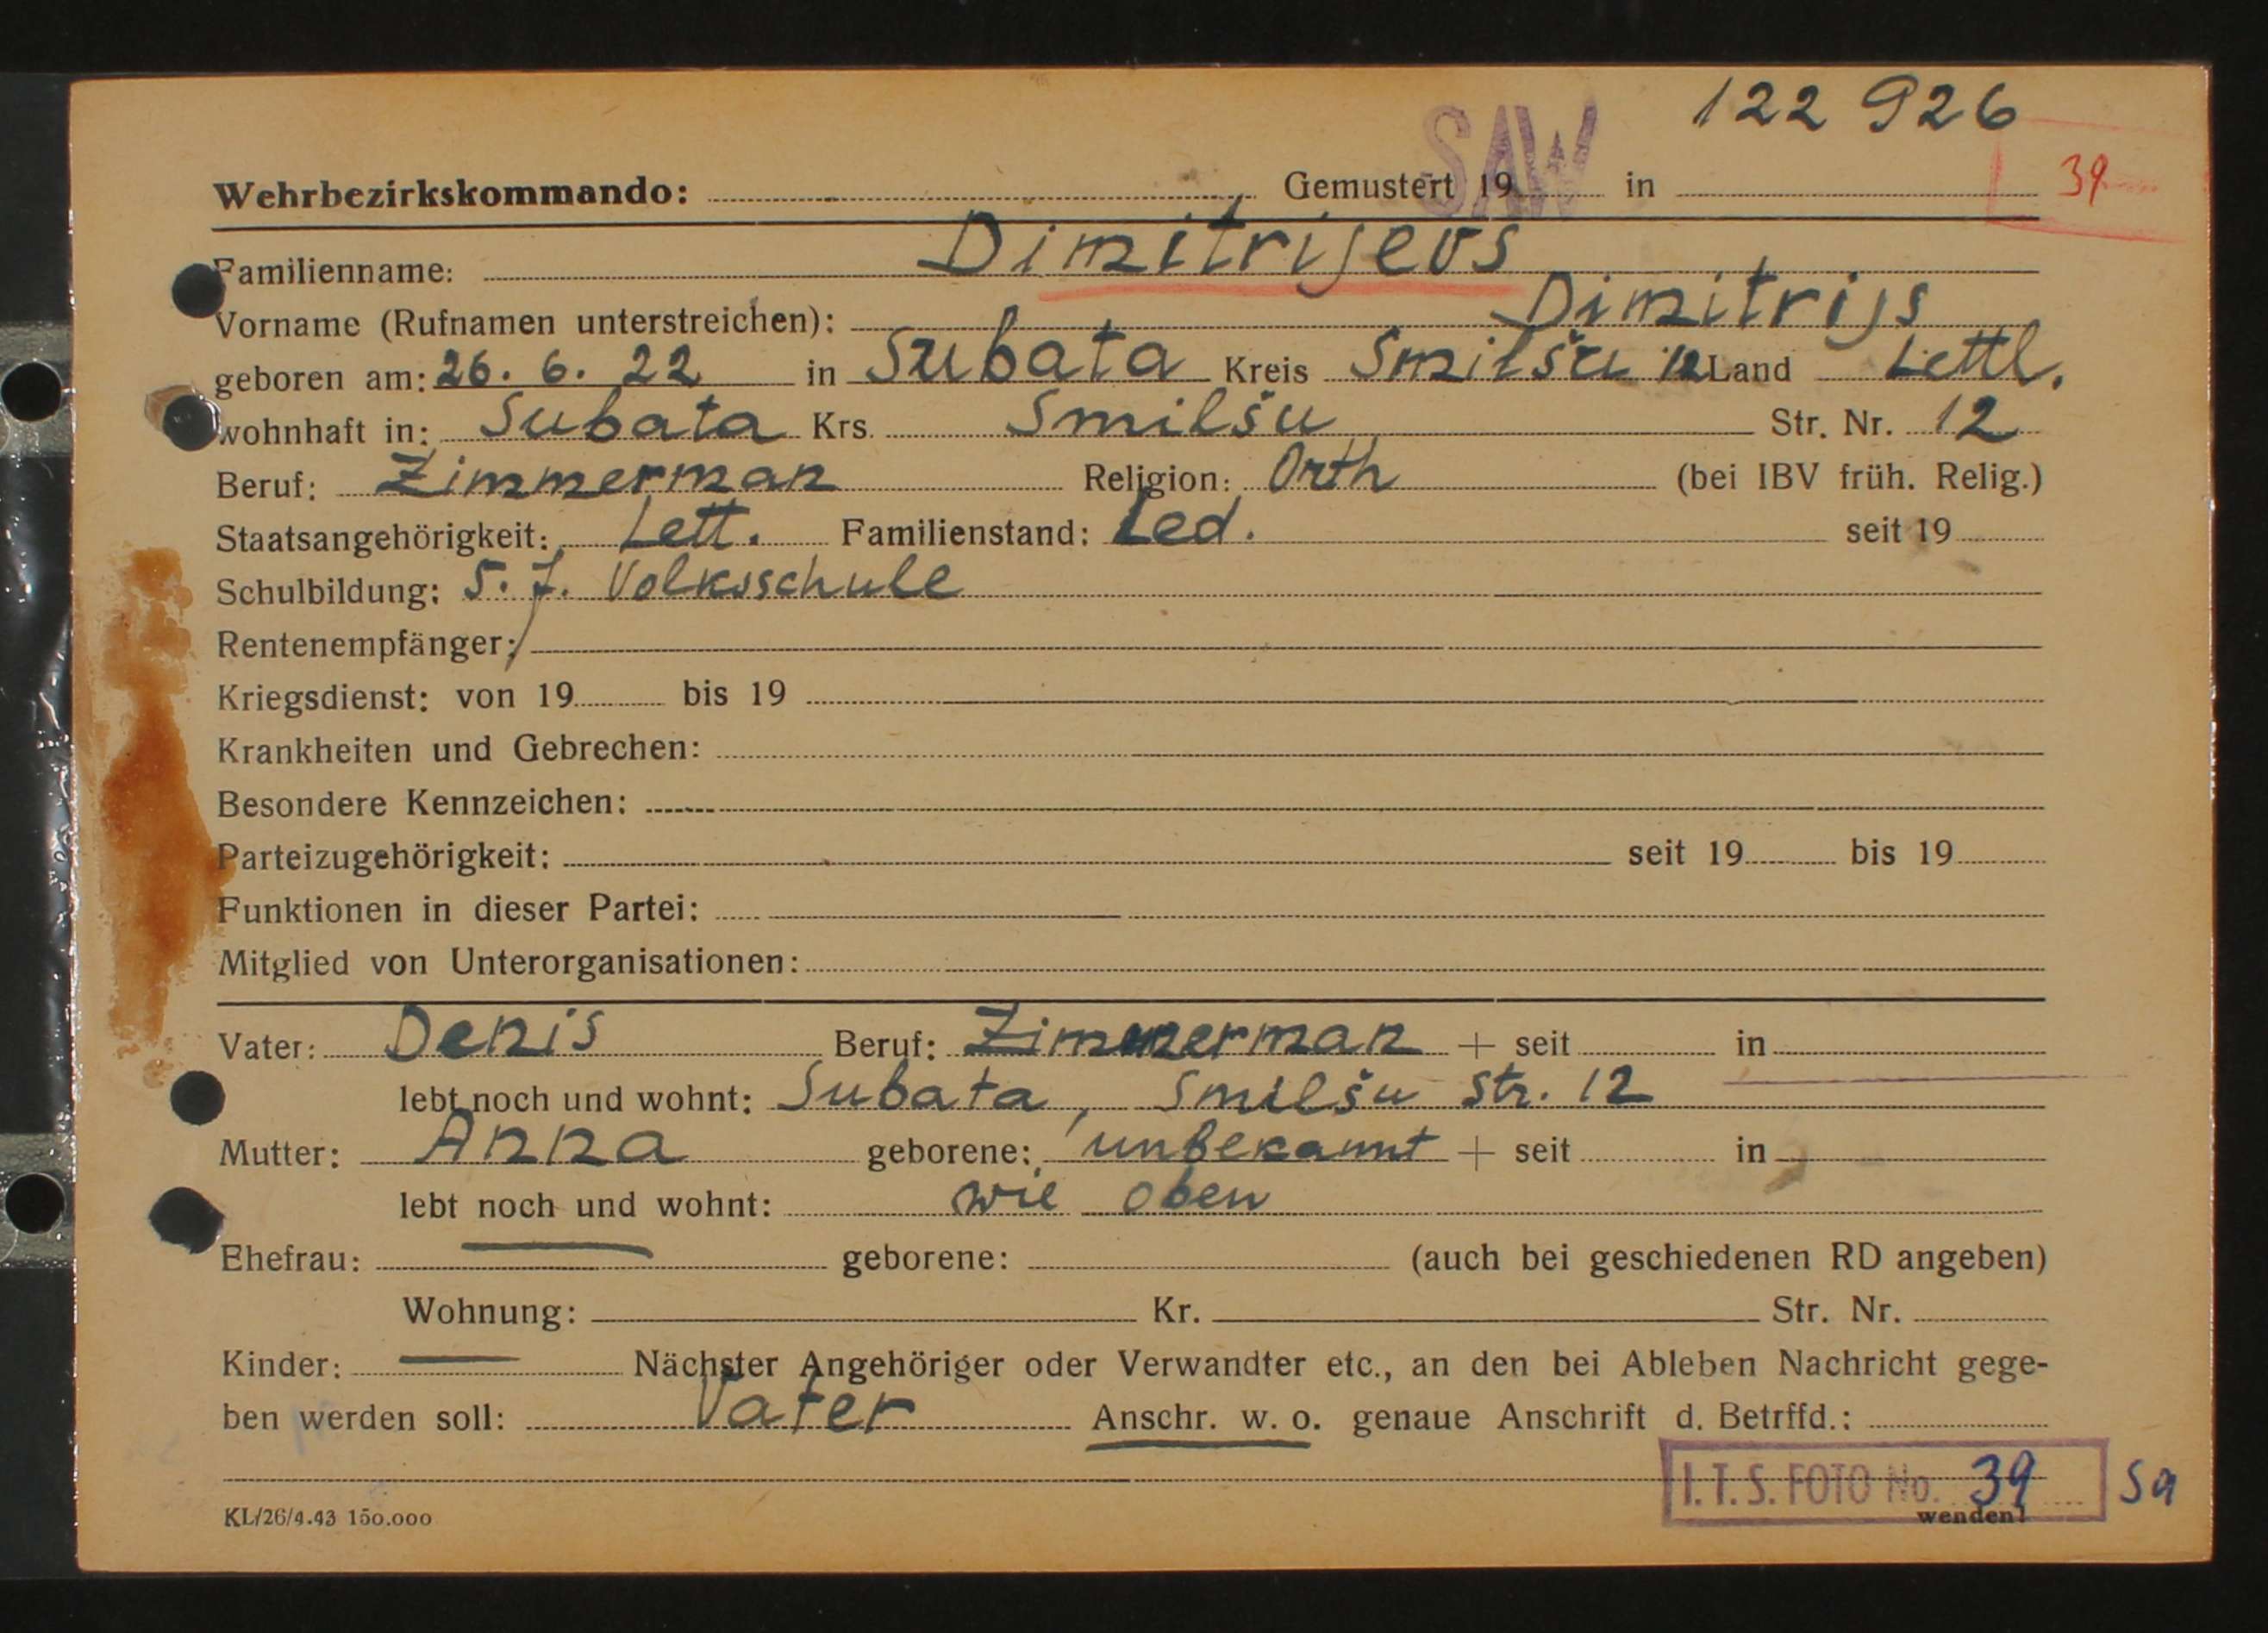 122 926
SAW
39
Wehrbezirkskommando: Gemustert 19 in
Familienname: Dimitrijevs
Vorname (Rufnamen unterstreichen): Dimitrijs
geboren am: 26. 6. 22 in Subata Kreis Smilšu 12 Land Lettl.
wohnhaft in: Subata Krs. Smilšu Str. Nr. 12
Beruf: Zimmerman Religion: Orth (bei IBV früh. Relig.)
Staatsangehörigkeit: Lett. Familienstand: Led. seit 19
Schulbildung: 5. J. Volksschule
Rentenempfänger:
Kriegsdienst: von 19 bis 19
Krankheiten und Gebrechen:
Besondere Kennzeichen:
Parteizugehörigkeit: seit 19 bis 19
Funktionen in dieser Partei:
Mitglied von Unterorganisationen:
Vater: Denis Beruf: Zimmerman + seit in
lebt noch und wohnt: Subata, Smilšu Str. 12
Mutter: Anna geborene: unbekannt + seit in
lebt noch und wohnt: wie oben
Ehefrau: — geborene: (auch bei geschiedenen RD angeben)
Wohnung: Kr. Str. Nr.
Kinder: — Nächster Angehöriger oder Verwandter etc., an den bei Ableben Nachricht gege-
ben werden soll: Vater Anschr. w. o. genaue Anschrift d. Betrffd.:
I.T.S. FOTO No. 39 Sa
KL/26/4.43 150.000 wenden!